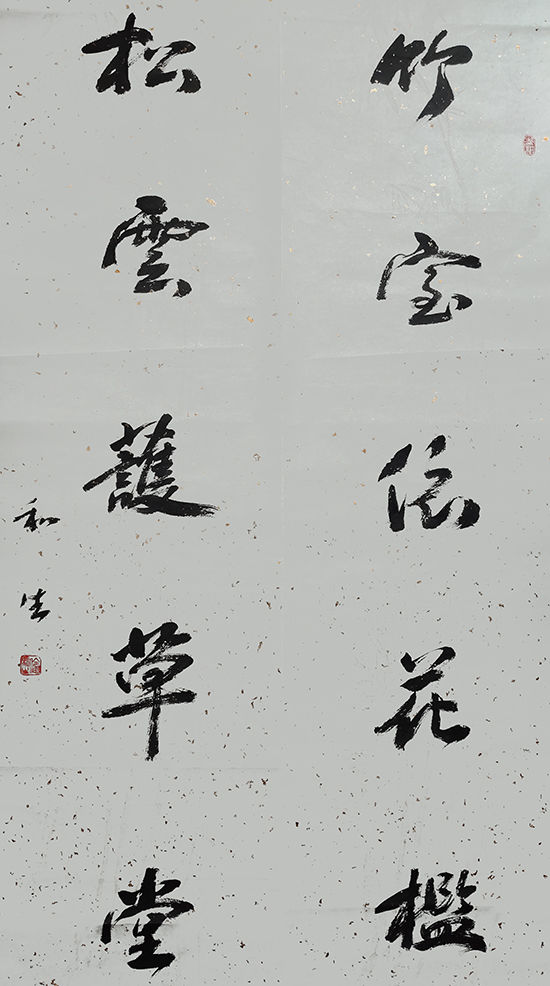 竹室依花檻
松雲護草堂
和生